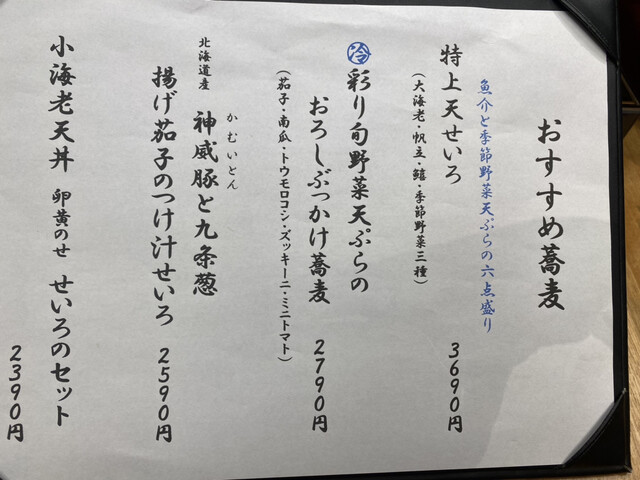 おすすめ蕎麦
魚介と季節野菜天ぷらの六点盛り
特上天せいろ 3690円
(大海老・帆立・鱚・季節野菜三種)
㊄冷 彩り旬野菜天ぷらの
おろしぶっかけ蕎麦 2790円
(茄子・南瓜・トウモロコシ・ズッキーニ・ミニトマト)
かむいとん
北海道産 神威豚と九条葱
揚げ茄子のつけ汁せいろ 2590円
小海老天丼 卵黄のせ せいろのセット
2390円